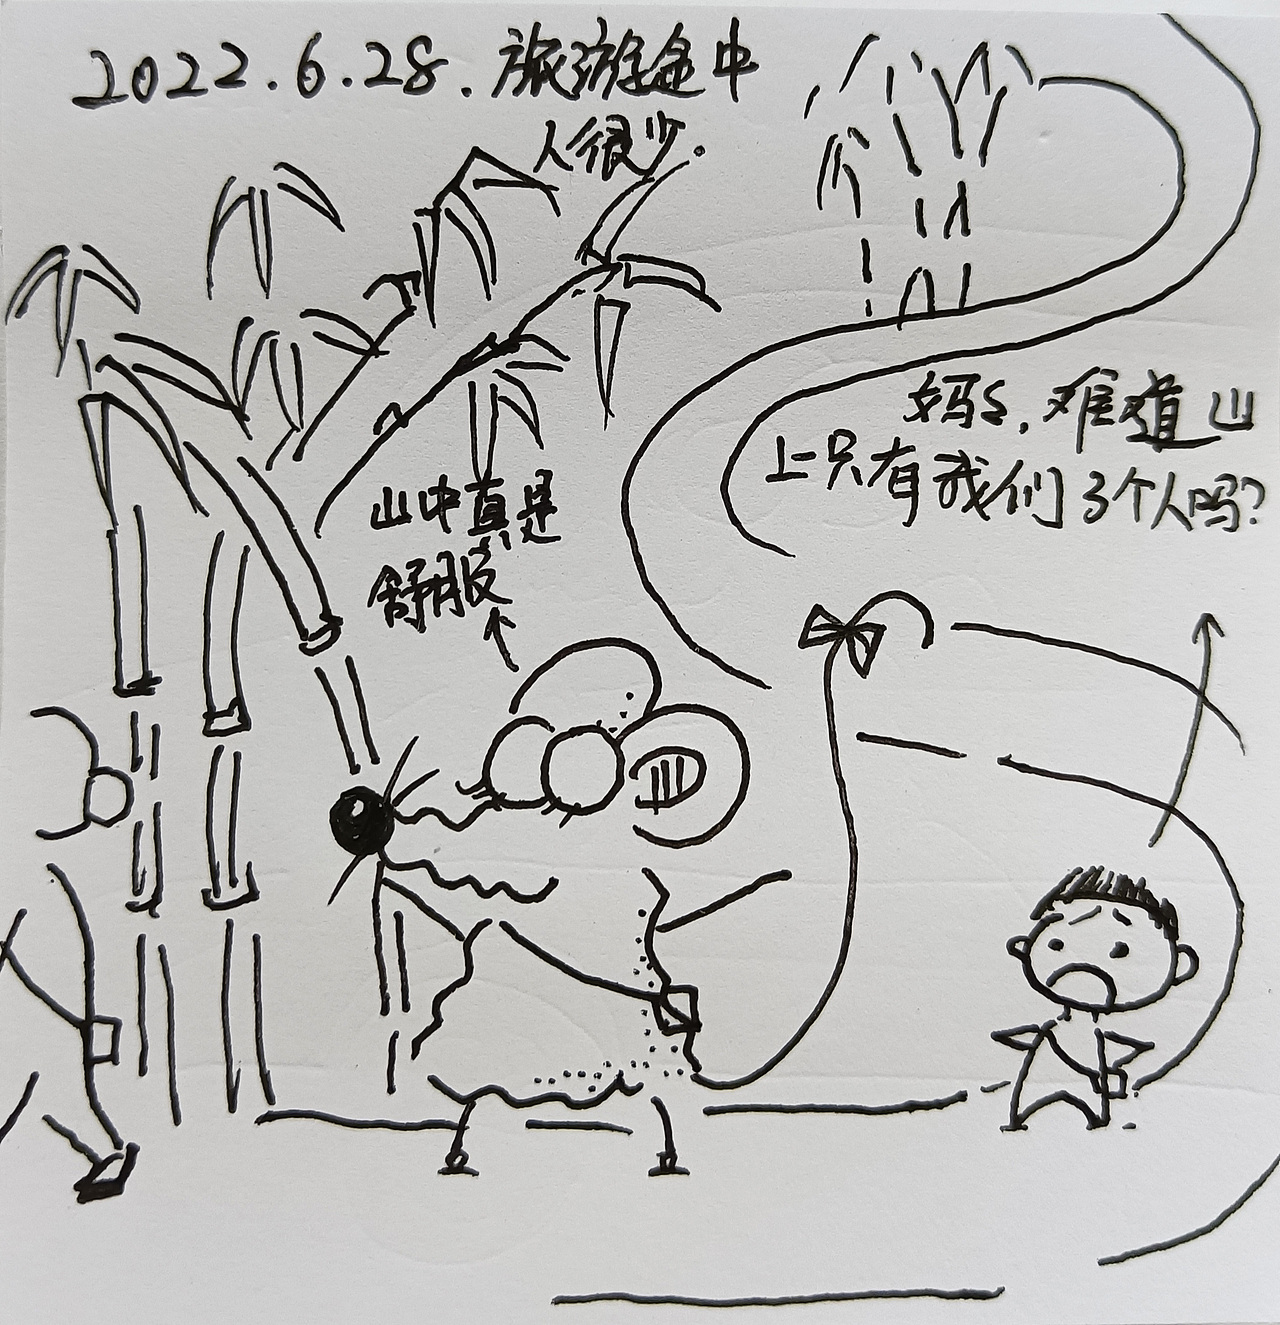 2022.6.28.旅游途中
人很少.
妈々,难道山
上只有我们3个人吗?
山中真是
舒服